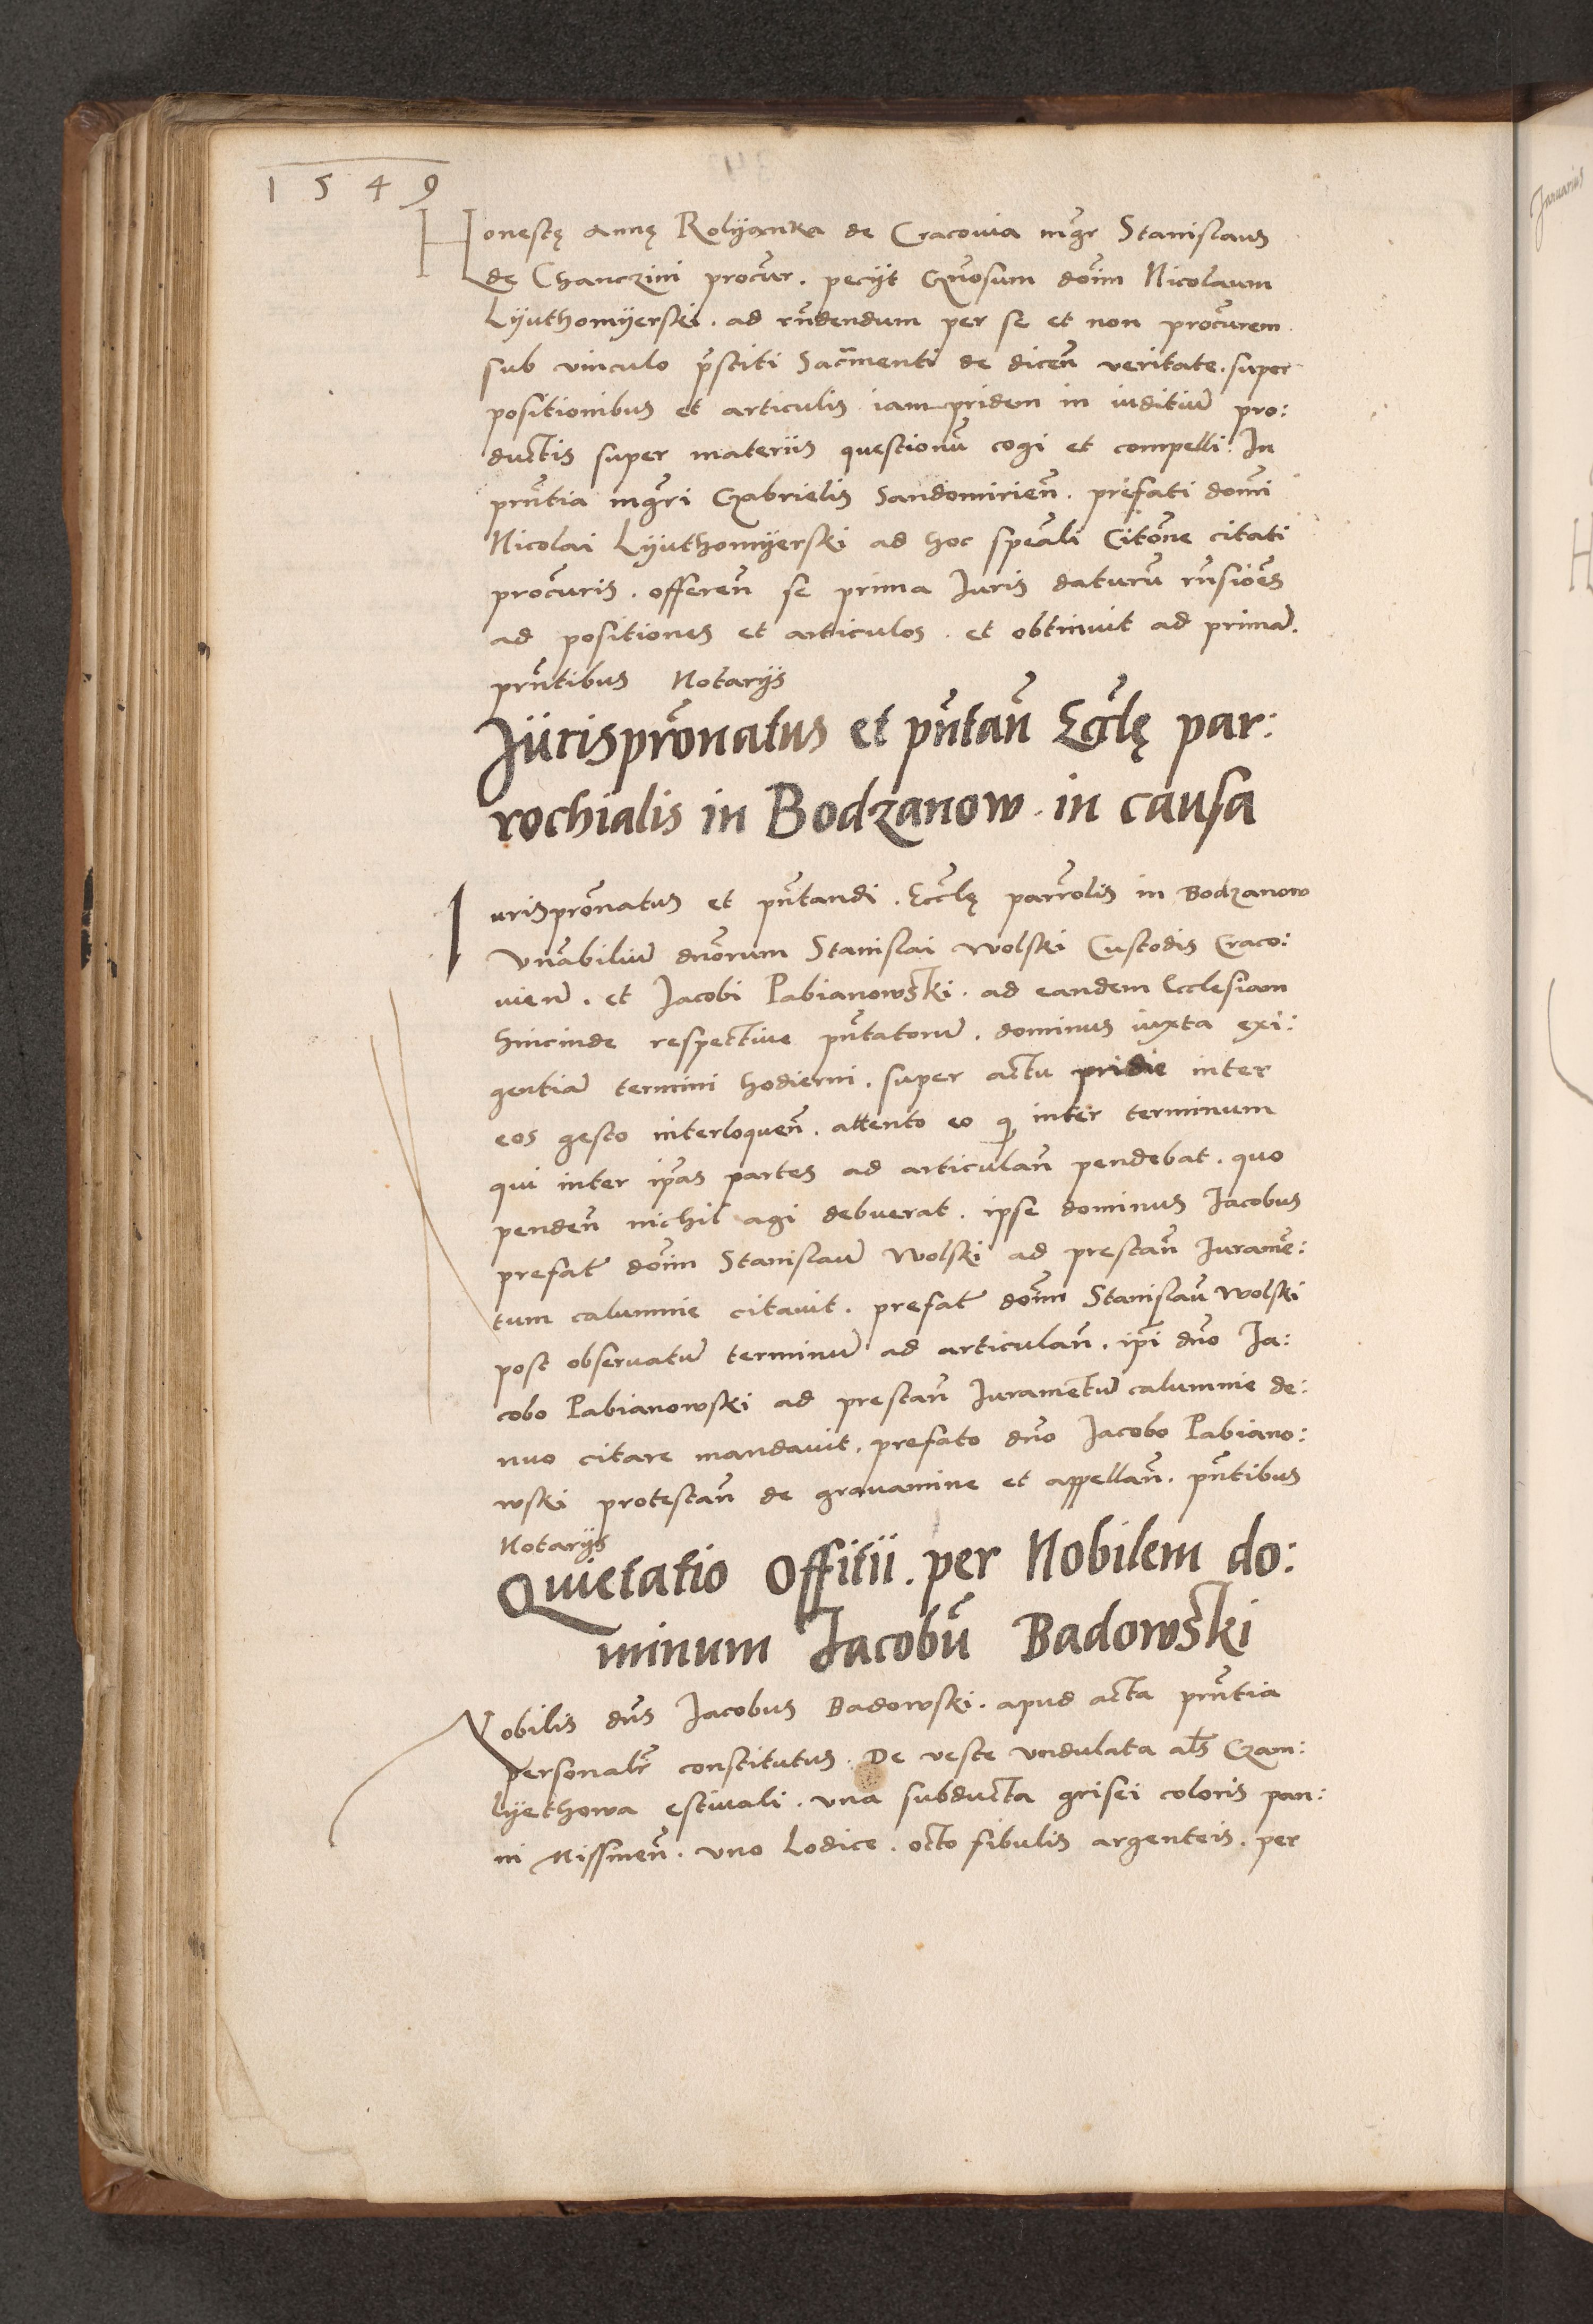 1549
Honestę Annę Rolyanka de Cracovia mgr̃ Stanislaus
de Chanczini procur̃. peciit Gñosum dom̃ Nicolaum
Lyuthomyerski. ad rñdendum per se et non procurem̃
sub vinculo p̃stiti Sacr̃menti de diceñ veritate. super
positionibus et articulis iam pridem in iuditiũ pro:
ductis super materiis questionũ cogi et compelli: In
pñtia mgr̃i Gabrielis Sandomirieñ. prefati domĩ
Nicolai Lyuthomyerski ad hoc speãli Citõne citati
procur̃is. offereñ se prima Juris daturũ rñsiões
ad positiones et articulos. et obtinuit ad primã.
pñtibus Notariis
Jurisprõnatus et pñtañ Eccl̃ę par:
rochialis in Bodzanow. in causa
Jurisprõnatus et pñtandi. Eccl̃ę parrõlis in Bodzanow
Vñabiliũ dñorum Stanislai Wolski Custodis Craco:
vieñ. et Jacobi Pabianowski. ad eandem Ecclesiam
hincinde respective pñtatorũ. dominus iuxta exi:
gentiã termini hodierni. super actu pridie inter
eos gesto interloqueñ. attento eo q̃ inter terminum
qui inter ip̃as partes ad articulañ pendebat. quo
pendeñ nichil agi debuerat. ipse dominus Jacobus
prefat̃ dom̃ Stanislaũ Wolski ad prestañ Juramẽ:
tum calumnie citavit. prefat̃ dom̃ Stanislaũ Wolski
post observatũ terminũ ad articulañ. ip̃i dño Ja:
cobo Pabianowski ad prestañ Juramentũ calumnie de:
nuo citare mandavit. prefato dño Jacobo Pabiano:
wski protestañ de gravamine et appellañ. pñtibus
Notariis
Quietatio Offitii. per Nobilem do:
minum Jacobũ Badowski
Nobilis dñs Jacobus Badowski. apud acta pñtia
personalr̃ constitutus. De veste undulata als̃ Czam:
lyethowa estivali. una subducta grisei coloris pan:
ni Nissneñ. uno Lodice. octo fibulis argenteis. per
Januarius